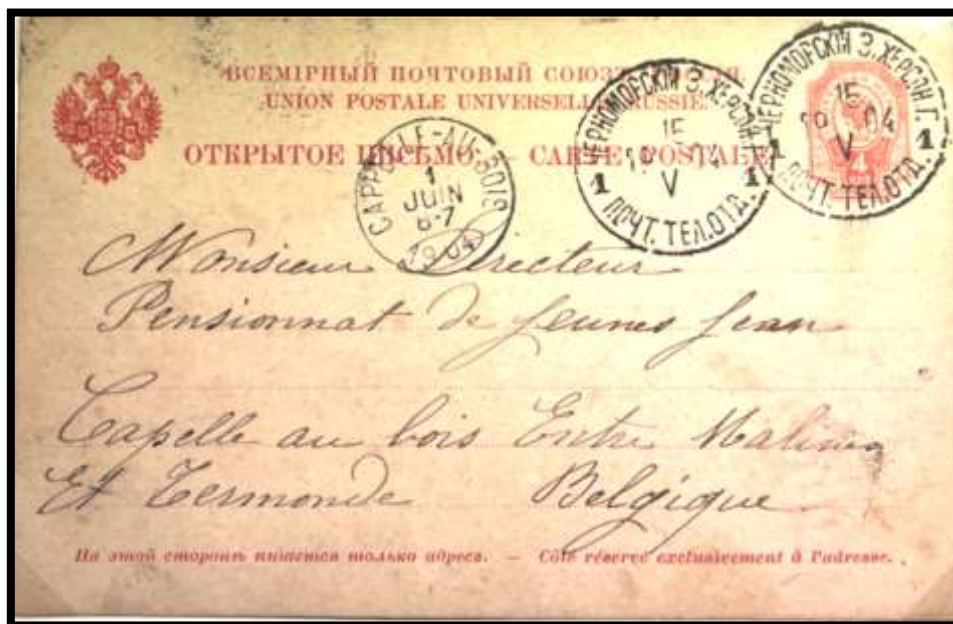 ВСЕМІРНЫЙ ПОЧТОВЫЙ СОЮЗЪ. РОССІЯ.
UNION POSTALE UNIVERSELLE. RUSSIE.
ОТКРЫТОЕ ПИСЬМО. — CARTE POSTALE
4
CAPPELLE-AU-BOIS
1
JUIN
6-7
1904
ЧЕРНОМОРСКІЙ З. ХЕРСОН. Г.
15
19 04
V
1 1
ПОЧТ. ТЕЛ. ОТД.
ЧЕРНОМОРСКІЙ З. ХЕРСОН. Г.
15
19 04
V
1 1
ПОЧТ. ТЕЛ. ОТД.
Monsieur Directeur
Pensionnat de jeunes
Capelle au bois Entre Malines
Et Termonde Belgique
На этой сторонѣ пишется только адресъ. — Côté réservé exclusivement à l'adresse.